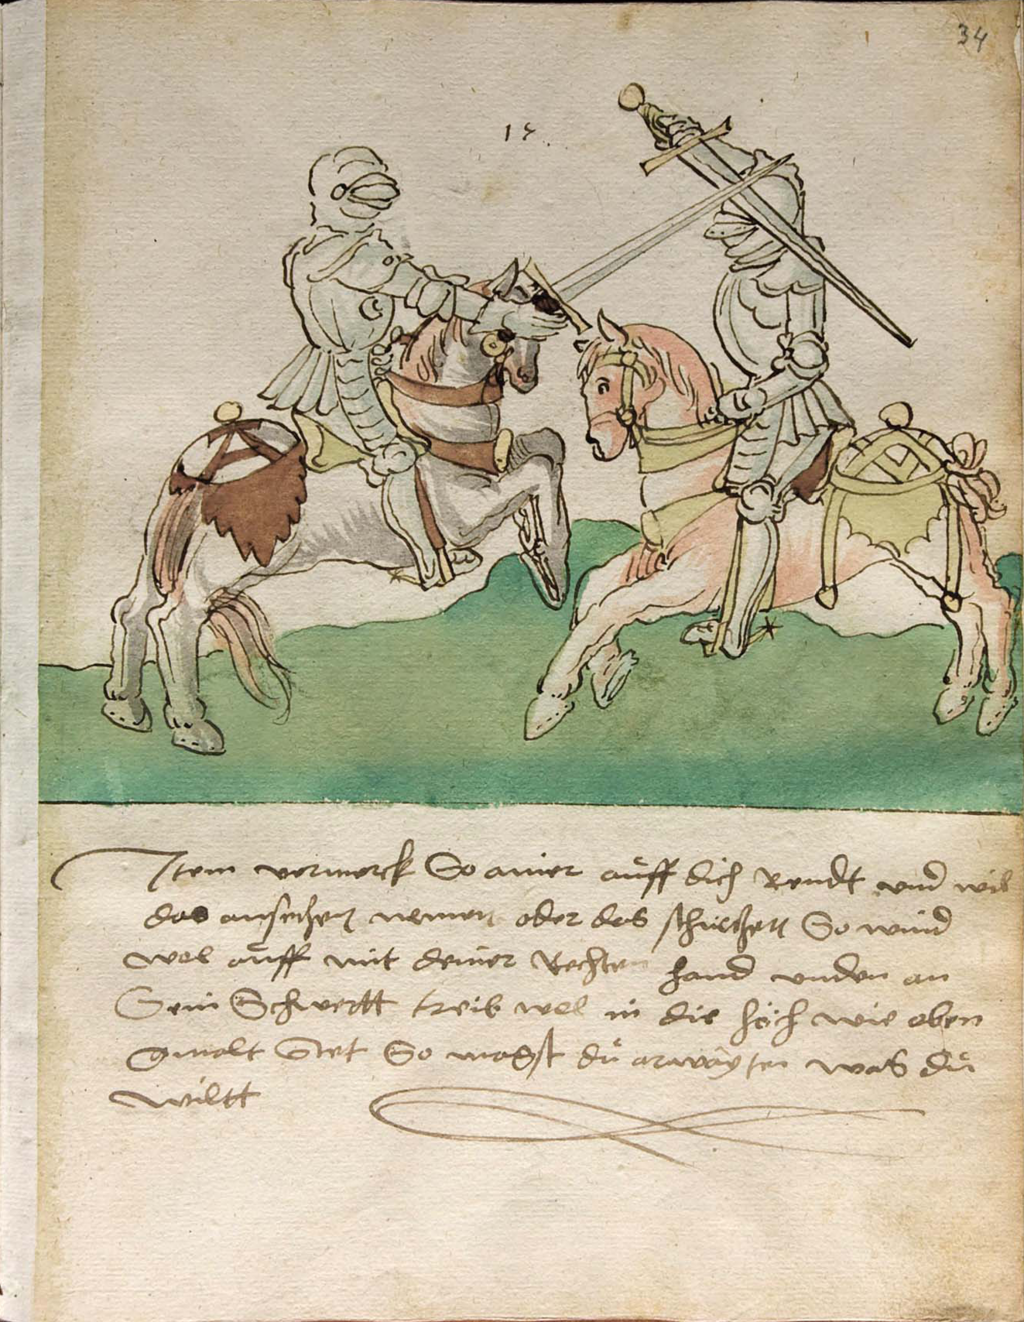 34
15
Item vermerck So ainer auff dich Rendt vnd wil
das ansechen nemen oder das schiessen So wind
wol auff mit deiner Rechten hand vnden an
Sein Schwertt treib wol in die höch wie oben
gmalt Stet So magst du arwayten was du
wiltt